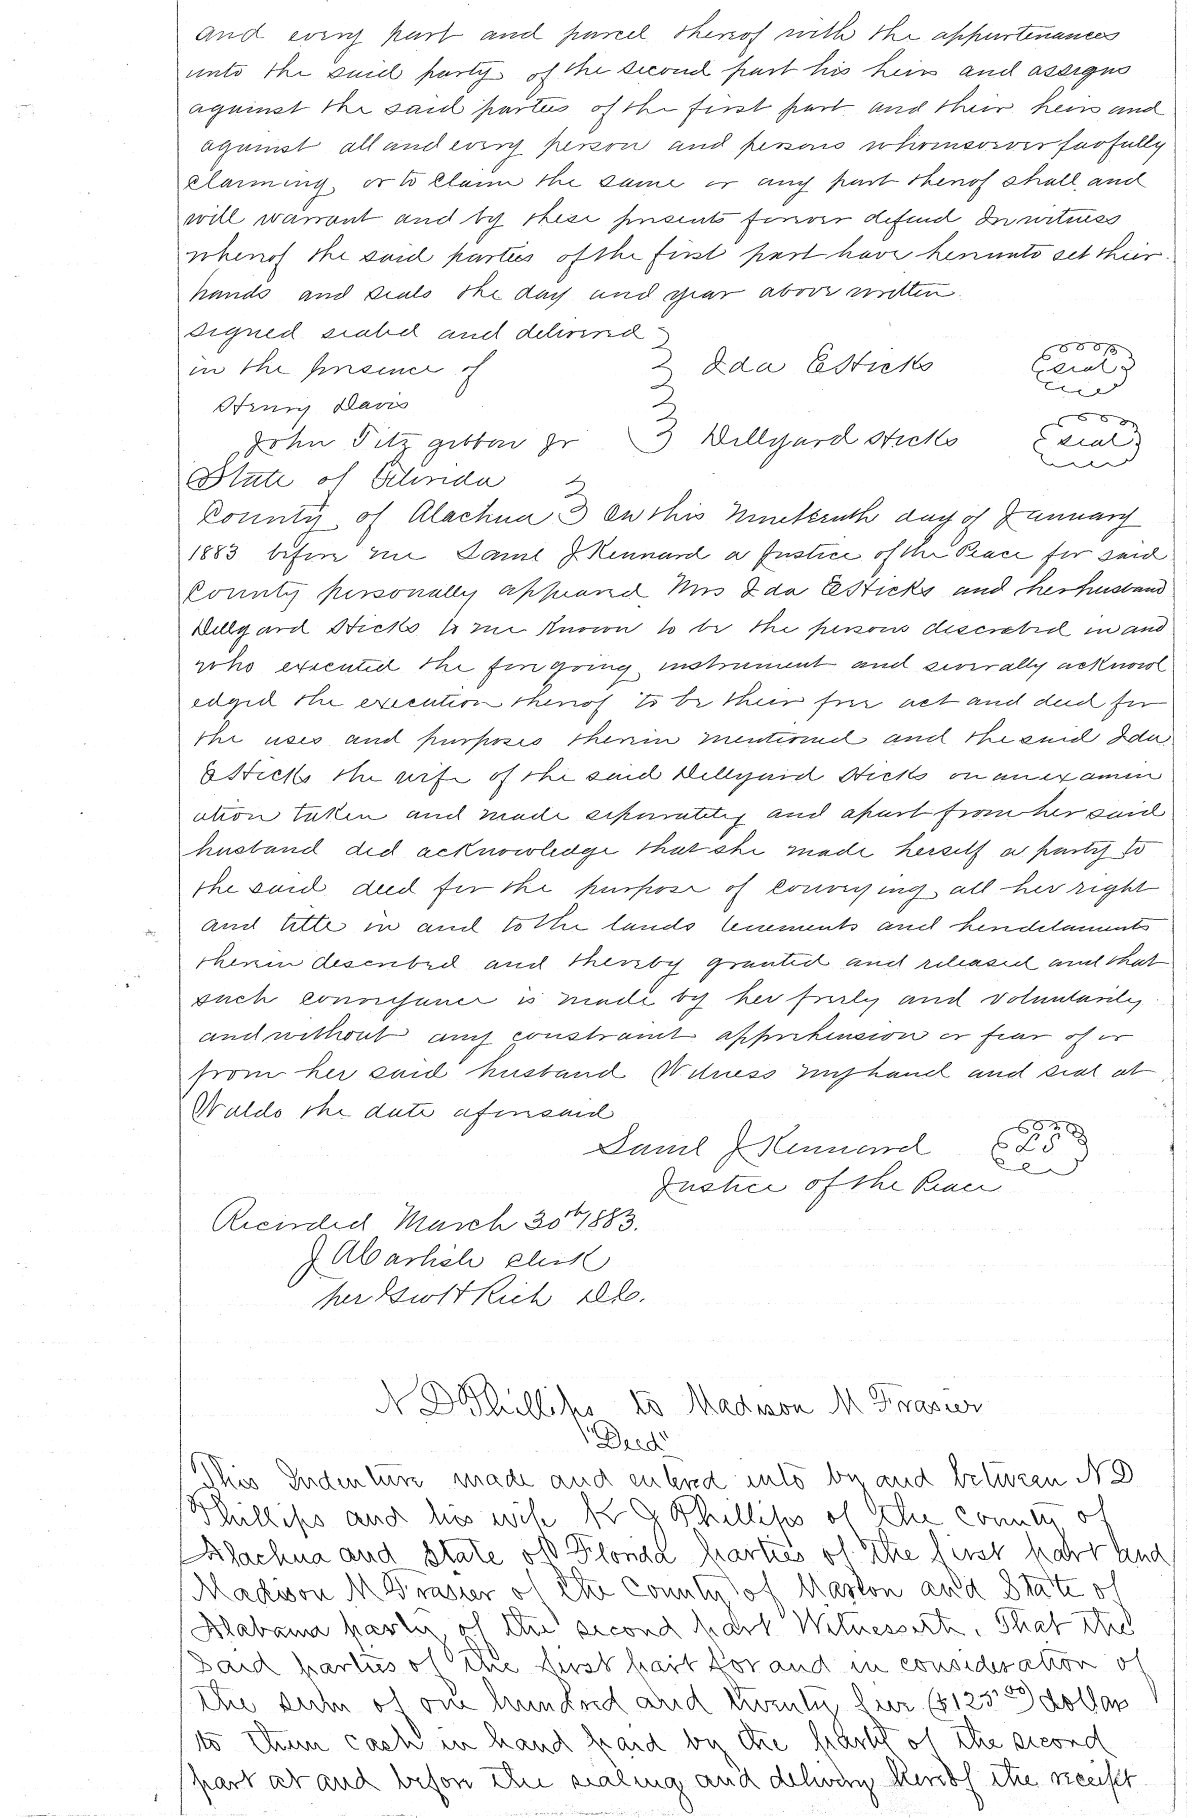 and every part and parcel thereof with the appurtenances
unto the said party of the second part his heirs and assigns
against the said parties of the first part and their heirs and
against all and every person and persons whomsoever lawfully
claiming or to claim the same or any part thereof shall and
will warrant and by these presents forever defend In witness
whereof the said parties of the first part have hereunto set their
hands and seals the day and year above written
signed sealed and delivered
in the presence of Ida E Hicks seal
Henry Davis
John Fitz gibbon Jr Dillyard Hicks seal
State of Florida
County of Alachua On this Nineteenth day of January
1883 before me Saml J Kennard a Justice of the Peace for said
County personally appeared Mrs Ida E Hicks and her husband
Dillyard Hicks to me known to be the persons described in and
who executed the foregoing instrument and severally acknowl
edged the execution thereof to be their free act and deed for
the uses and purposes therein mentioned and the said Ida
E Hicks the wife of the said Dillyard Hicks on an examin
ation taken and made separately and apart from her said
husband did acknowledge that she made herself a party to
the said deed for the purpose of conveying all her right
and title in and to the lands tenements and heridetaments
therein described and thereby granted and released and that
such conveyance is made by her freely and voluntarily
and without any constraint apprehension or fear of or
from her said husband Witness my hand and seal at
Waldo the date aforesaid
Saml J Kennard LS
Justice of the Peace
Recorded March 30th 1883.
J A Carlisle Clerk
per Geo H Rich D.C.
N D Phillips to Madison M Frasier
"Deed"
This Indenture made and entered into by and between N D
Phillips and his wife K J Phillips of the county of
Alachua and State of Florida parties of the first part and
Madison M Frasier of the County of Marion and State of
Alabama party of the second part Witnesseth. That the
Said parties of the first part for and in consideration of
the sum of one hundred and twenty five ($125.00) dollars
to them cash in hand paid by the party of the second
part at and before the sealing and delivery hereof the receipt